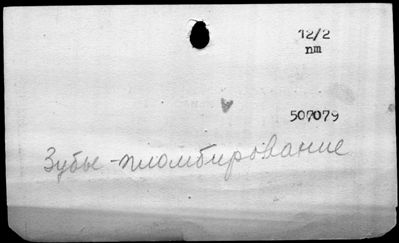 12/2
пт
507079
Зубы-пломбирование